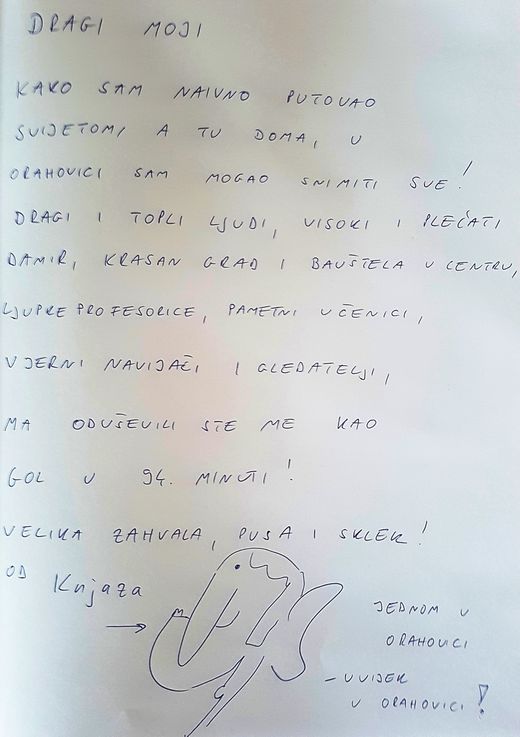 DRAGI MOJI
KAKO SAM NAIVNO PUTOVAO
SVIJETOM, A TU DOMA, U
ORAHOVICI SAM MOGAO SNIMITI SVE!
DRAGI I TOPLI LJUDI, VISOKI I PLEĆATI
DAMIR, KRASAN GRAD I BAUŠTELA U CENTRU,
LJUPKE PROFESORICE, PAMETNI UČENICI,
VJERNI NAVIJAČI I GLEDATELJI,
MA ODUŠEVILI STE ME KAO
GOL U 94. MINUTI!
VELIKA ZAHVALA, PUSA I SKLEK!
OD Knjaza
JEDNOM U
ORAHOVICI
- UVIJEK
U ORAHOVICI!